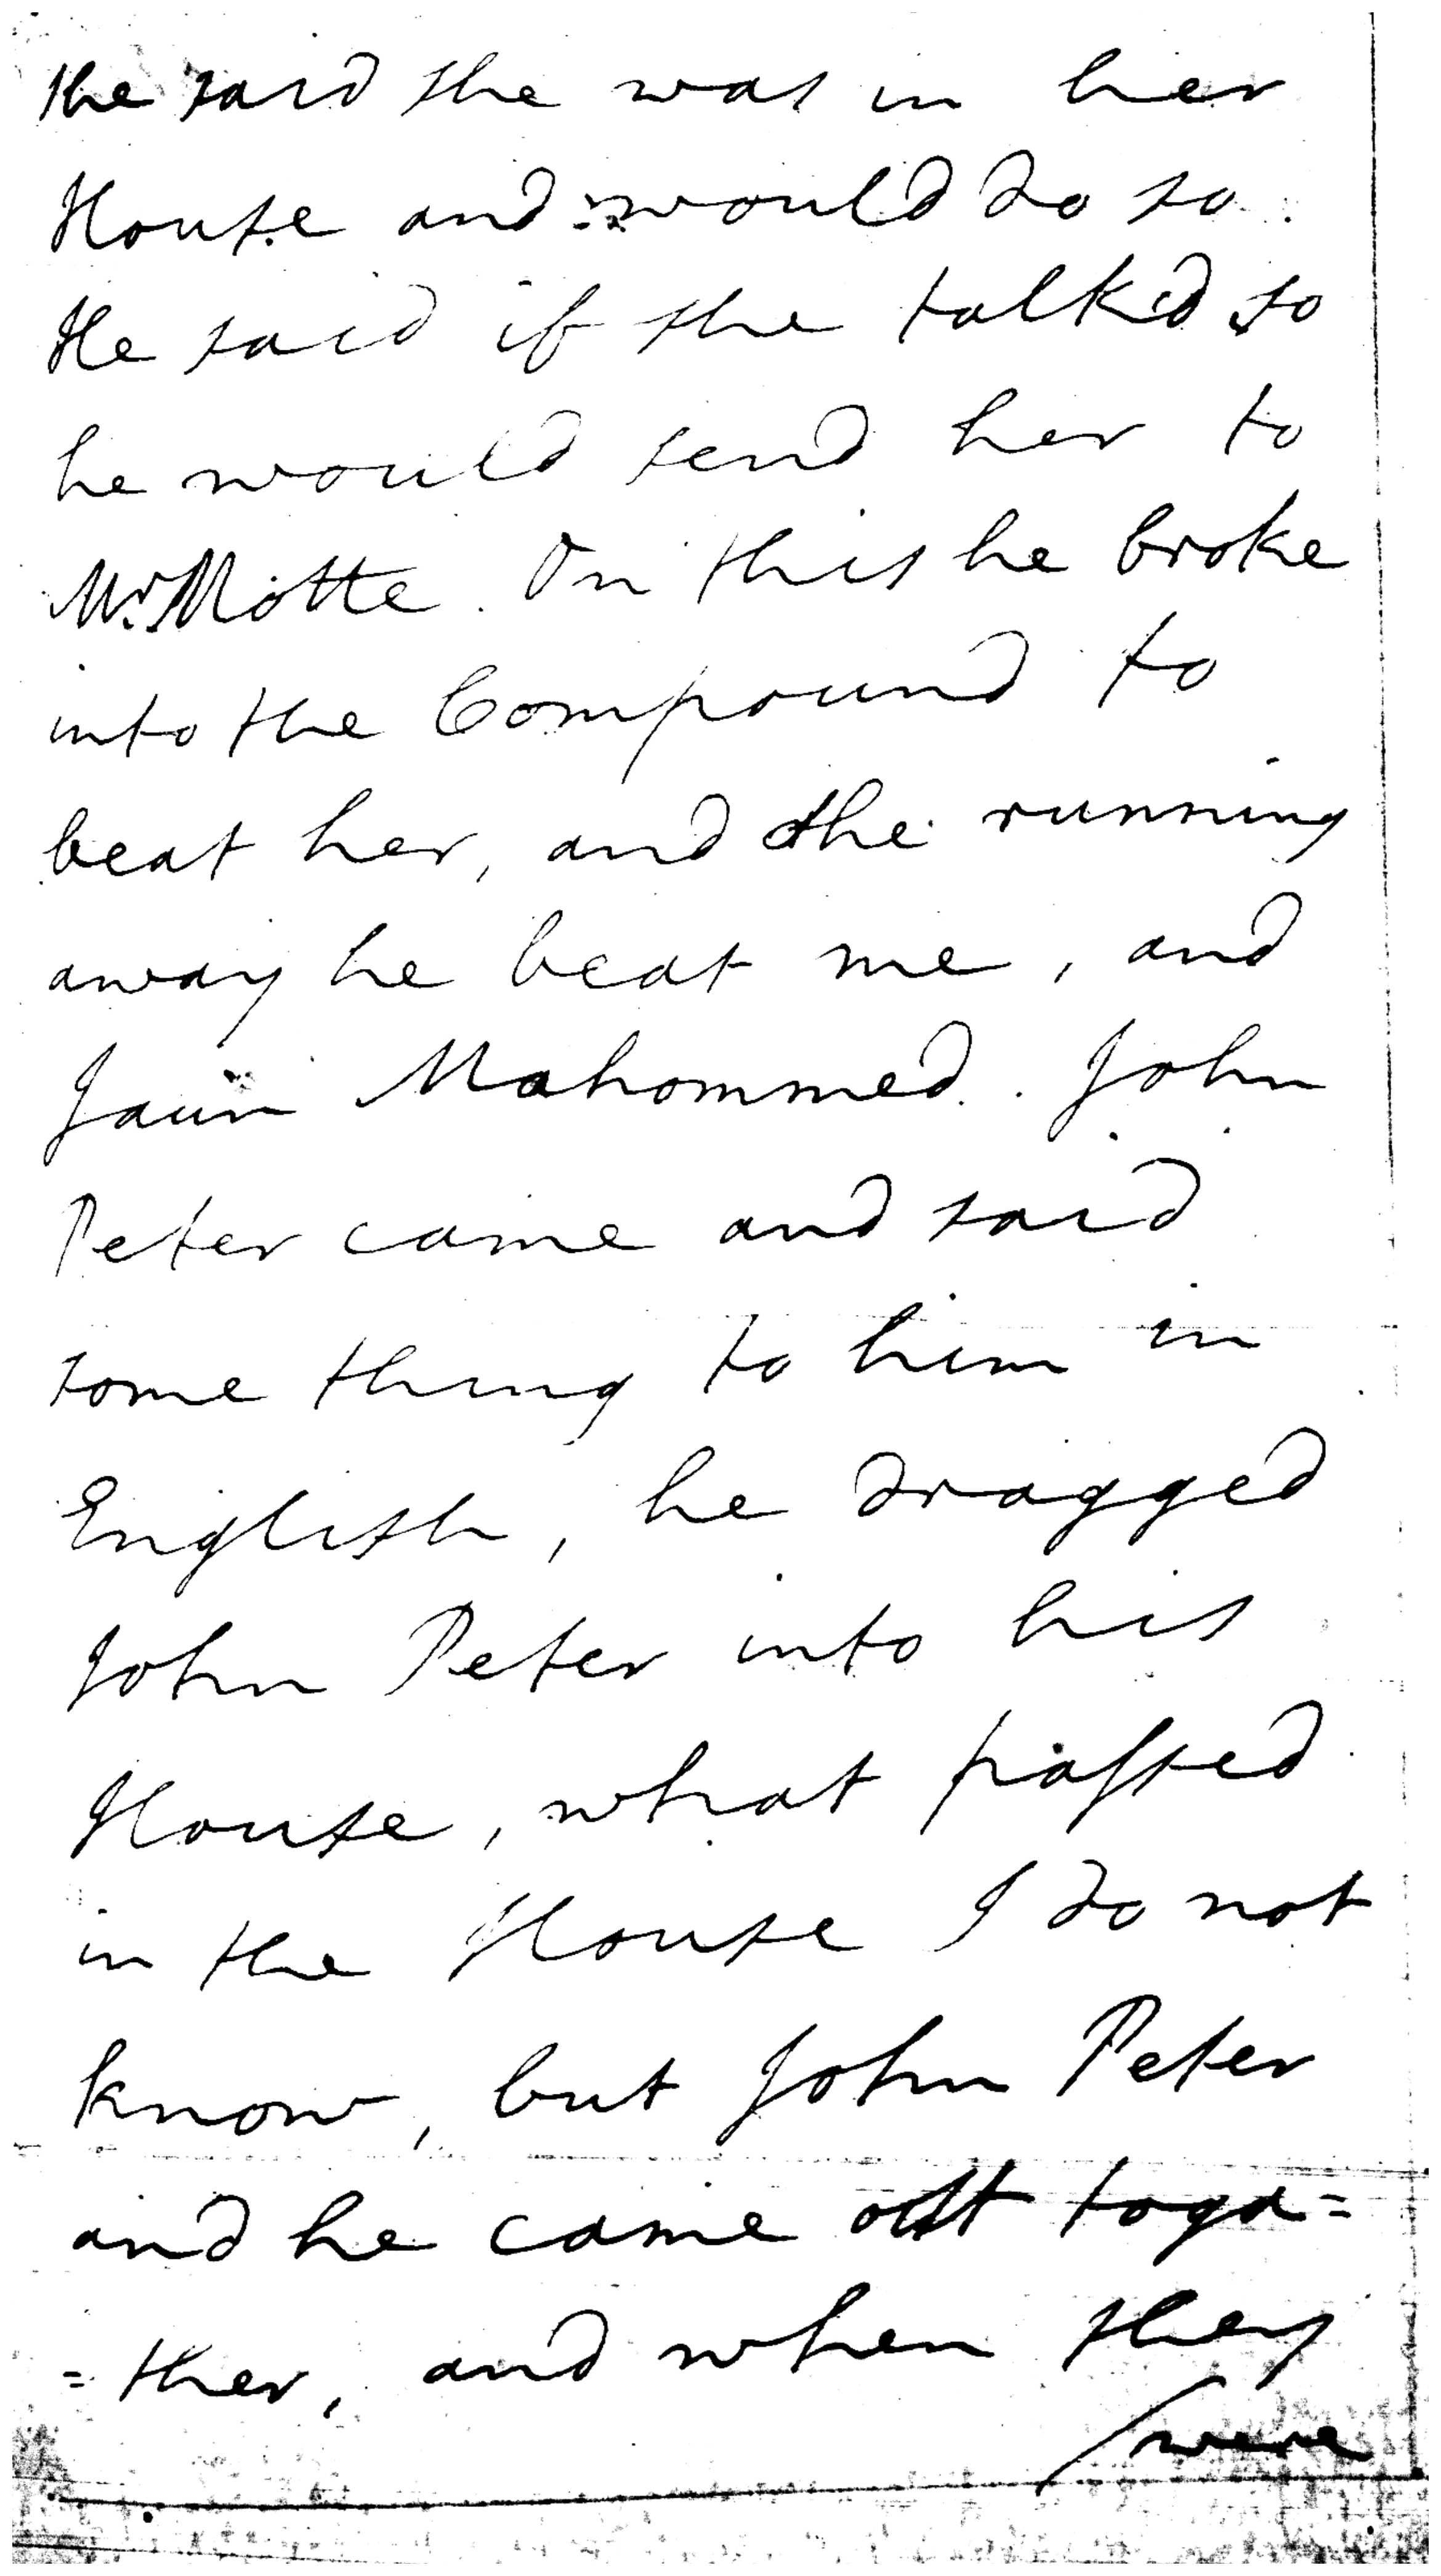 she said she was in her
House and would do so.
He said if she talk'd so
he would send her to
Mr. Motte. On this he broke
into the Compound to
beat her, and she running
away he beat me, and
Jaun Mahommed. John
Peter came and said
some thing to him in
English, he dragged
John Peter into his
House, what passed
in the House I do not
know, but John Peter
and he came out toge=
=ther, and when they
/were